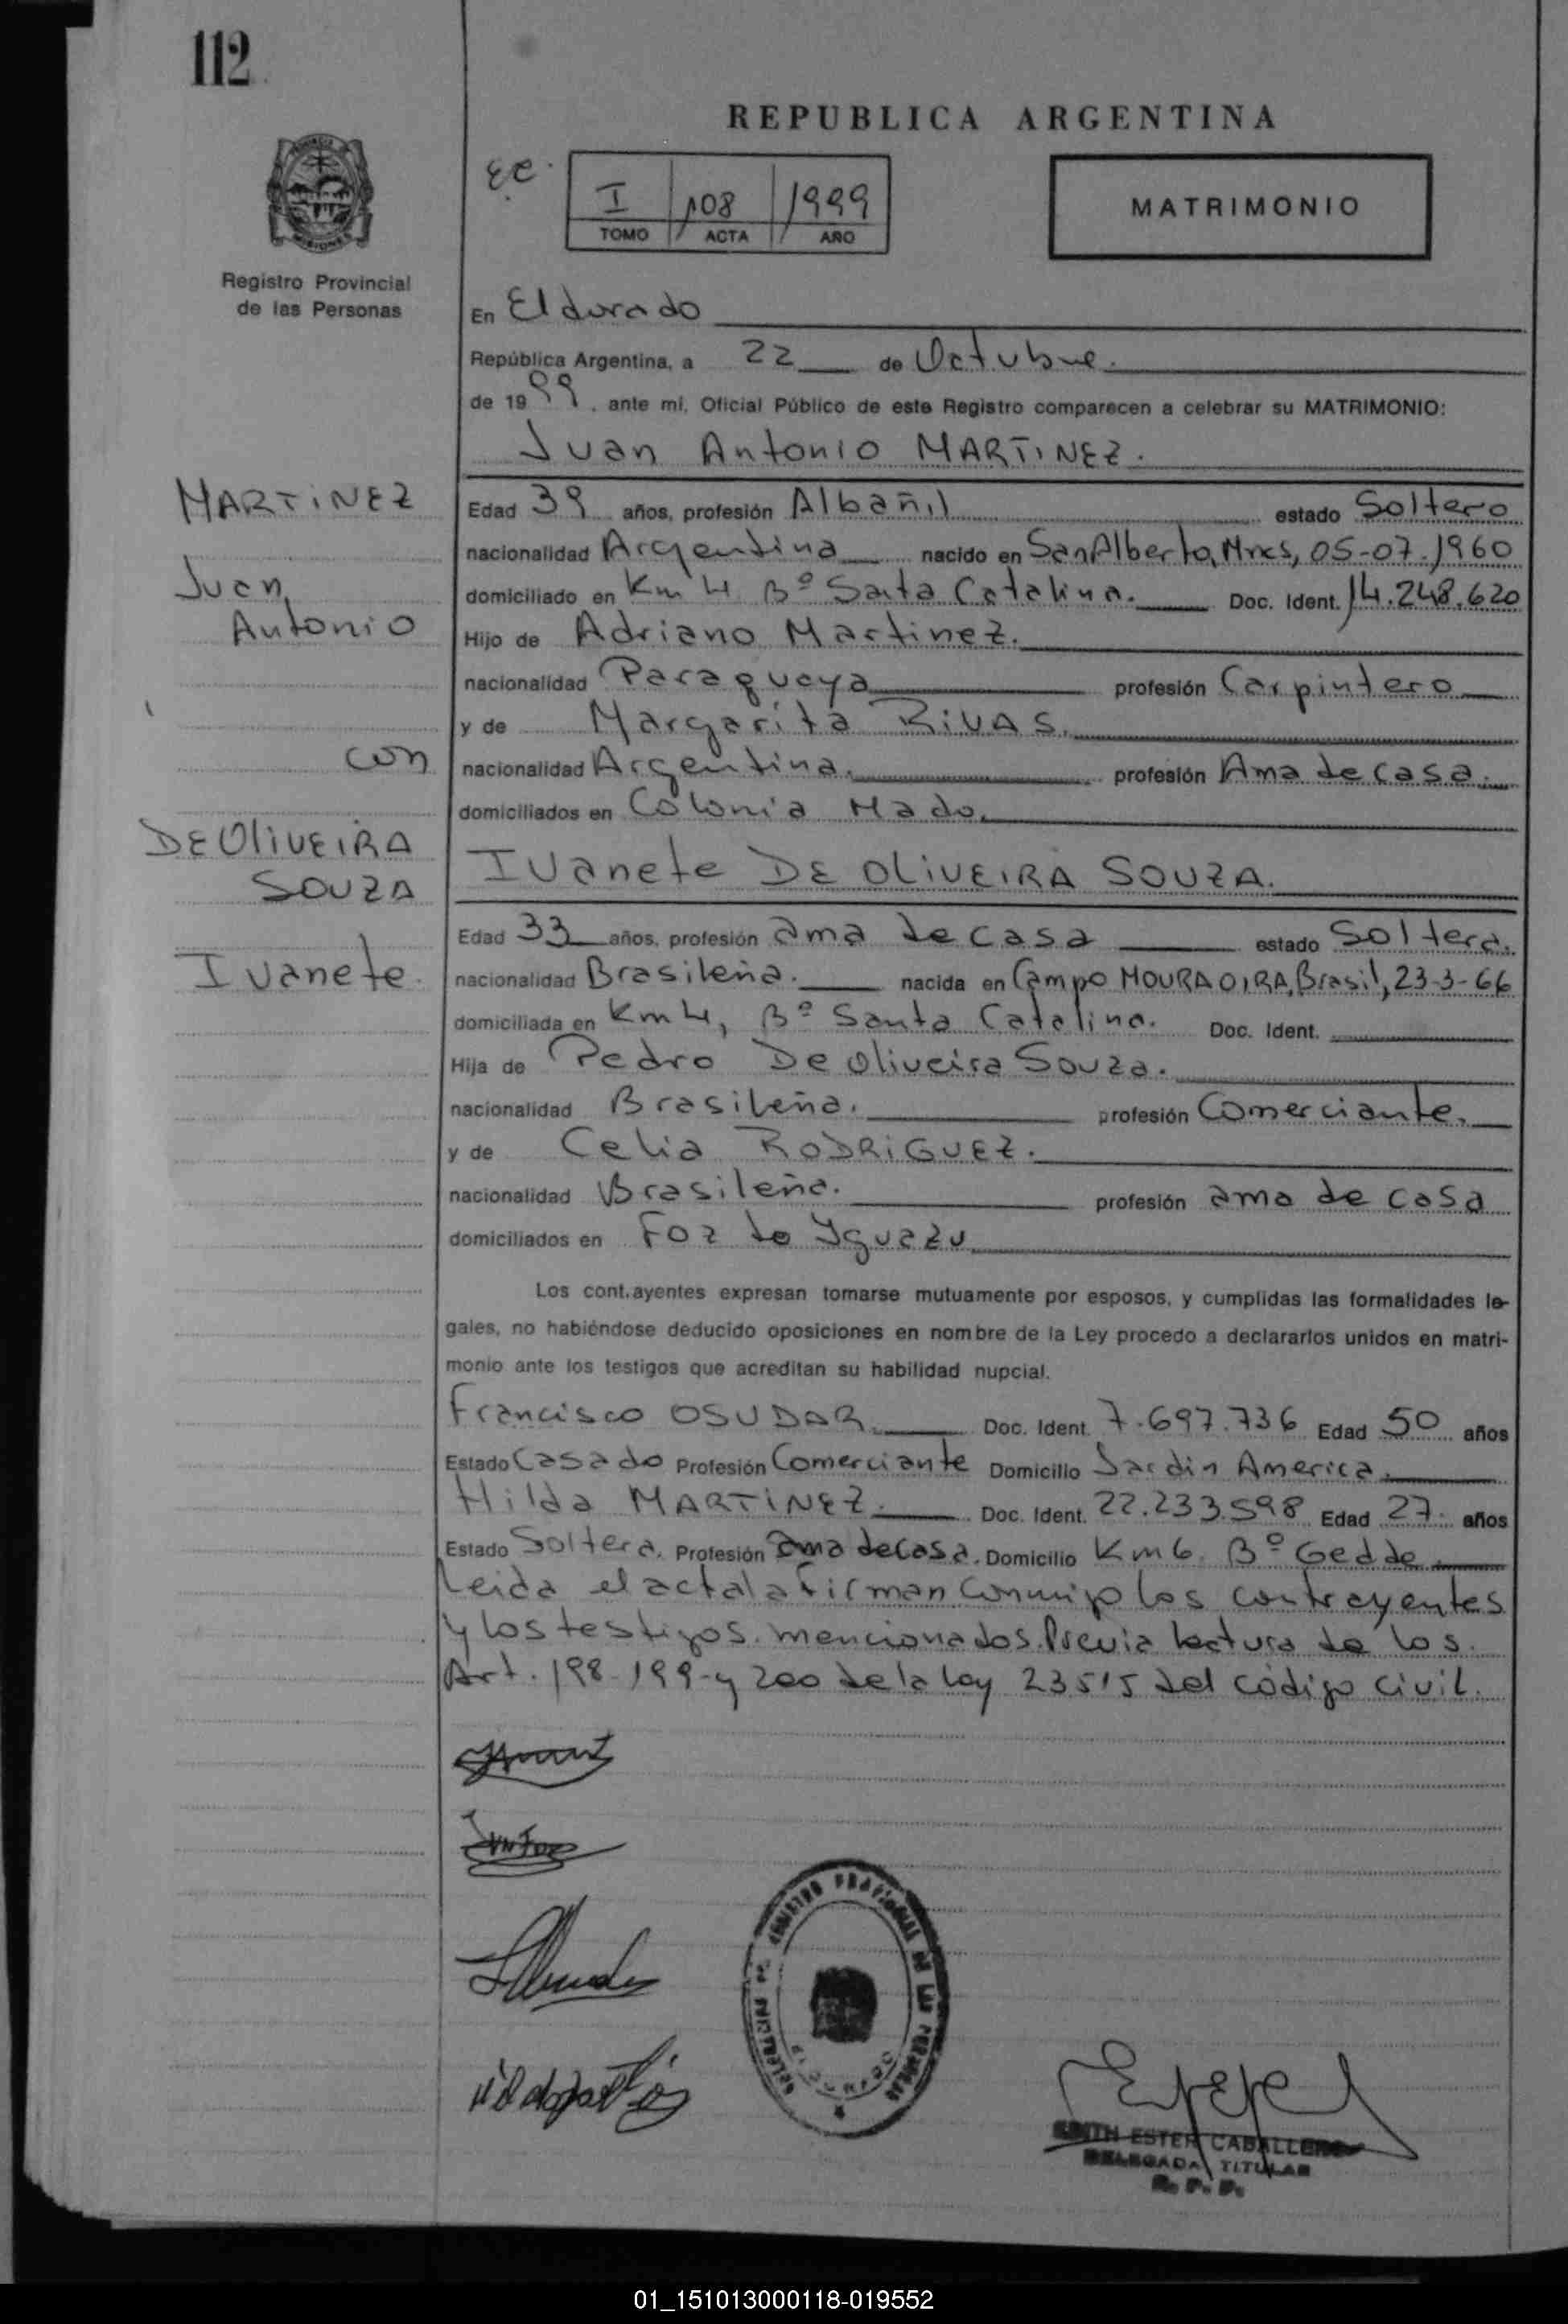 112
REPUBLICA ARGENTINA
I 108 1999
TOMO ACTA AÑO
MATRIMONIO
Registro Provincial
de las Personas
En Eldorado
República Argentina, a 22 de Octubre.
de 1999, ante mí, Oficial Público de este Registro comparecen a celebrar su MATRIMONIO:
Juan Antonio MARTINEZ.
MARTINEZ
Juan
Antonio
con
DE OLIVEIRA
SOUZA
Ivanete.
Edad 39 años, profesión Albañil estado Soltero
nacionalidad Argentina nacido en San Alberto, Mnes, 05-07-1960
domiciliado en Km 4 Bº Santa Catalina. Doc. Ident. 14.248.620
Hijo de Adriano Martinez.
nacionalidad Paraguaya profesión Carpintero
y de Margarita RIVAS.
nacionalidad Argentina. profesión Ama de casa.
domiciliados en Colonia Mado.
Ivanete DE OLIVEIRA SOUZA.
Edad 33 años, profesión ama de casa estado Soltera.
nacionalidad Brasileña. nacida en Campo MOURAOIRA, Brasil, 23-3-66
domiciliada en Km 4, Bº Santa Catalina. Doc. Ident.
Hija de Pedro De Oliveira Souza.
nacionalidad Brasileña. profesión Comerciante.
y de Celia RODRIGUEZ.
nacionalidad Brasileña. profesión ama de casa
domiciliados en Foz do Yguazu
Los cont.ayentes expresan tomarse mutuamente por esposos, y cumplidas las formalidades le-
gales, no habiéndose deducido oposiciones en nombre de la Ley procedo a declararlos unidos en matri-
monio ante los testigos que acreditan su habilidad nupcial.
Francisco OSUDAR. Doc. Ident. 7.697.736 Edad 50 años
Estado Casado Profesión Comerciante Domicilio Jardin America.
Hilda MARTINEZ. Doc. Ident. 22.233.598 Edad 27. años
Estado Soltera. Profesión ama de casa. Domicilio Km 6. Bº Gedde.
Leida el acta la firman conmigo los contrayentes
y los testigos mencionados. Previa lectura de los
Art. 198-199-y 200 de la ley 23515 del código civil.
REGISTRO PROVINCIAL DE LAS PERSONAS
ELDORADO
EDITH ESTER CABALLERO
DELEGADA TITULAR
R. P. P.
01_151013000118-019552